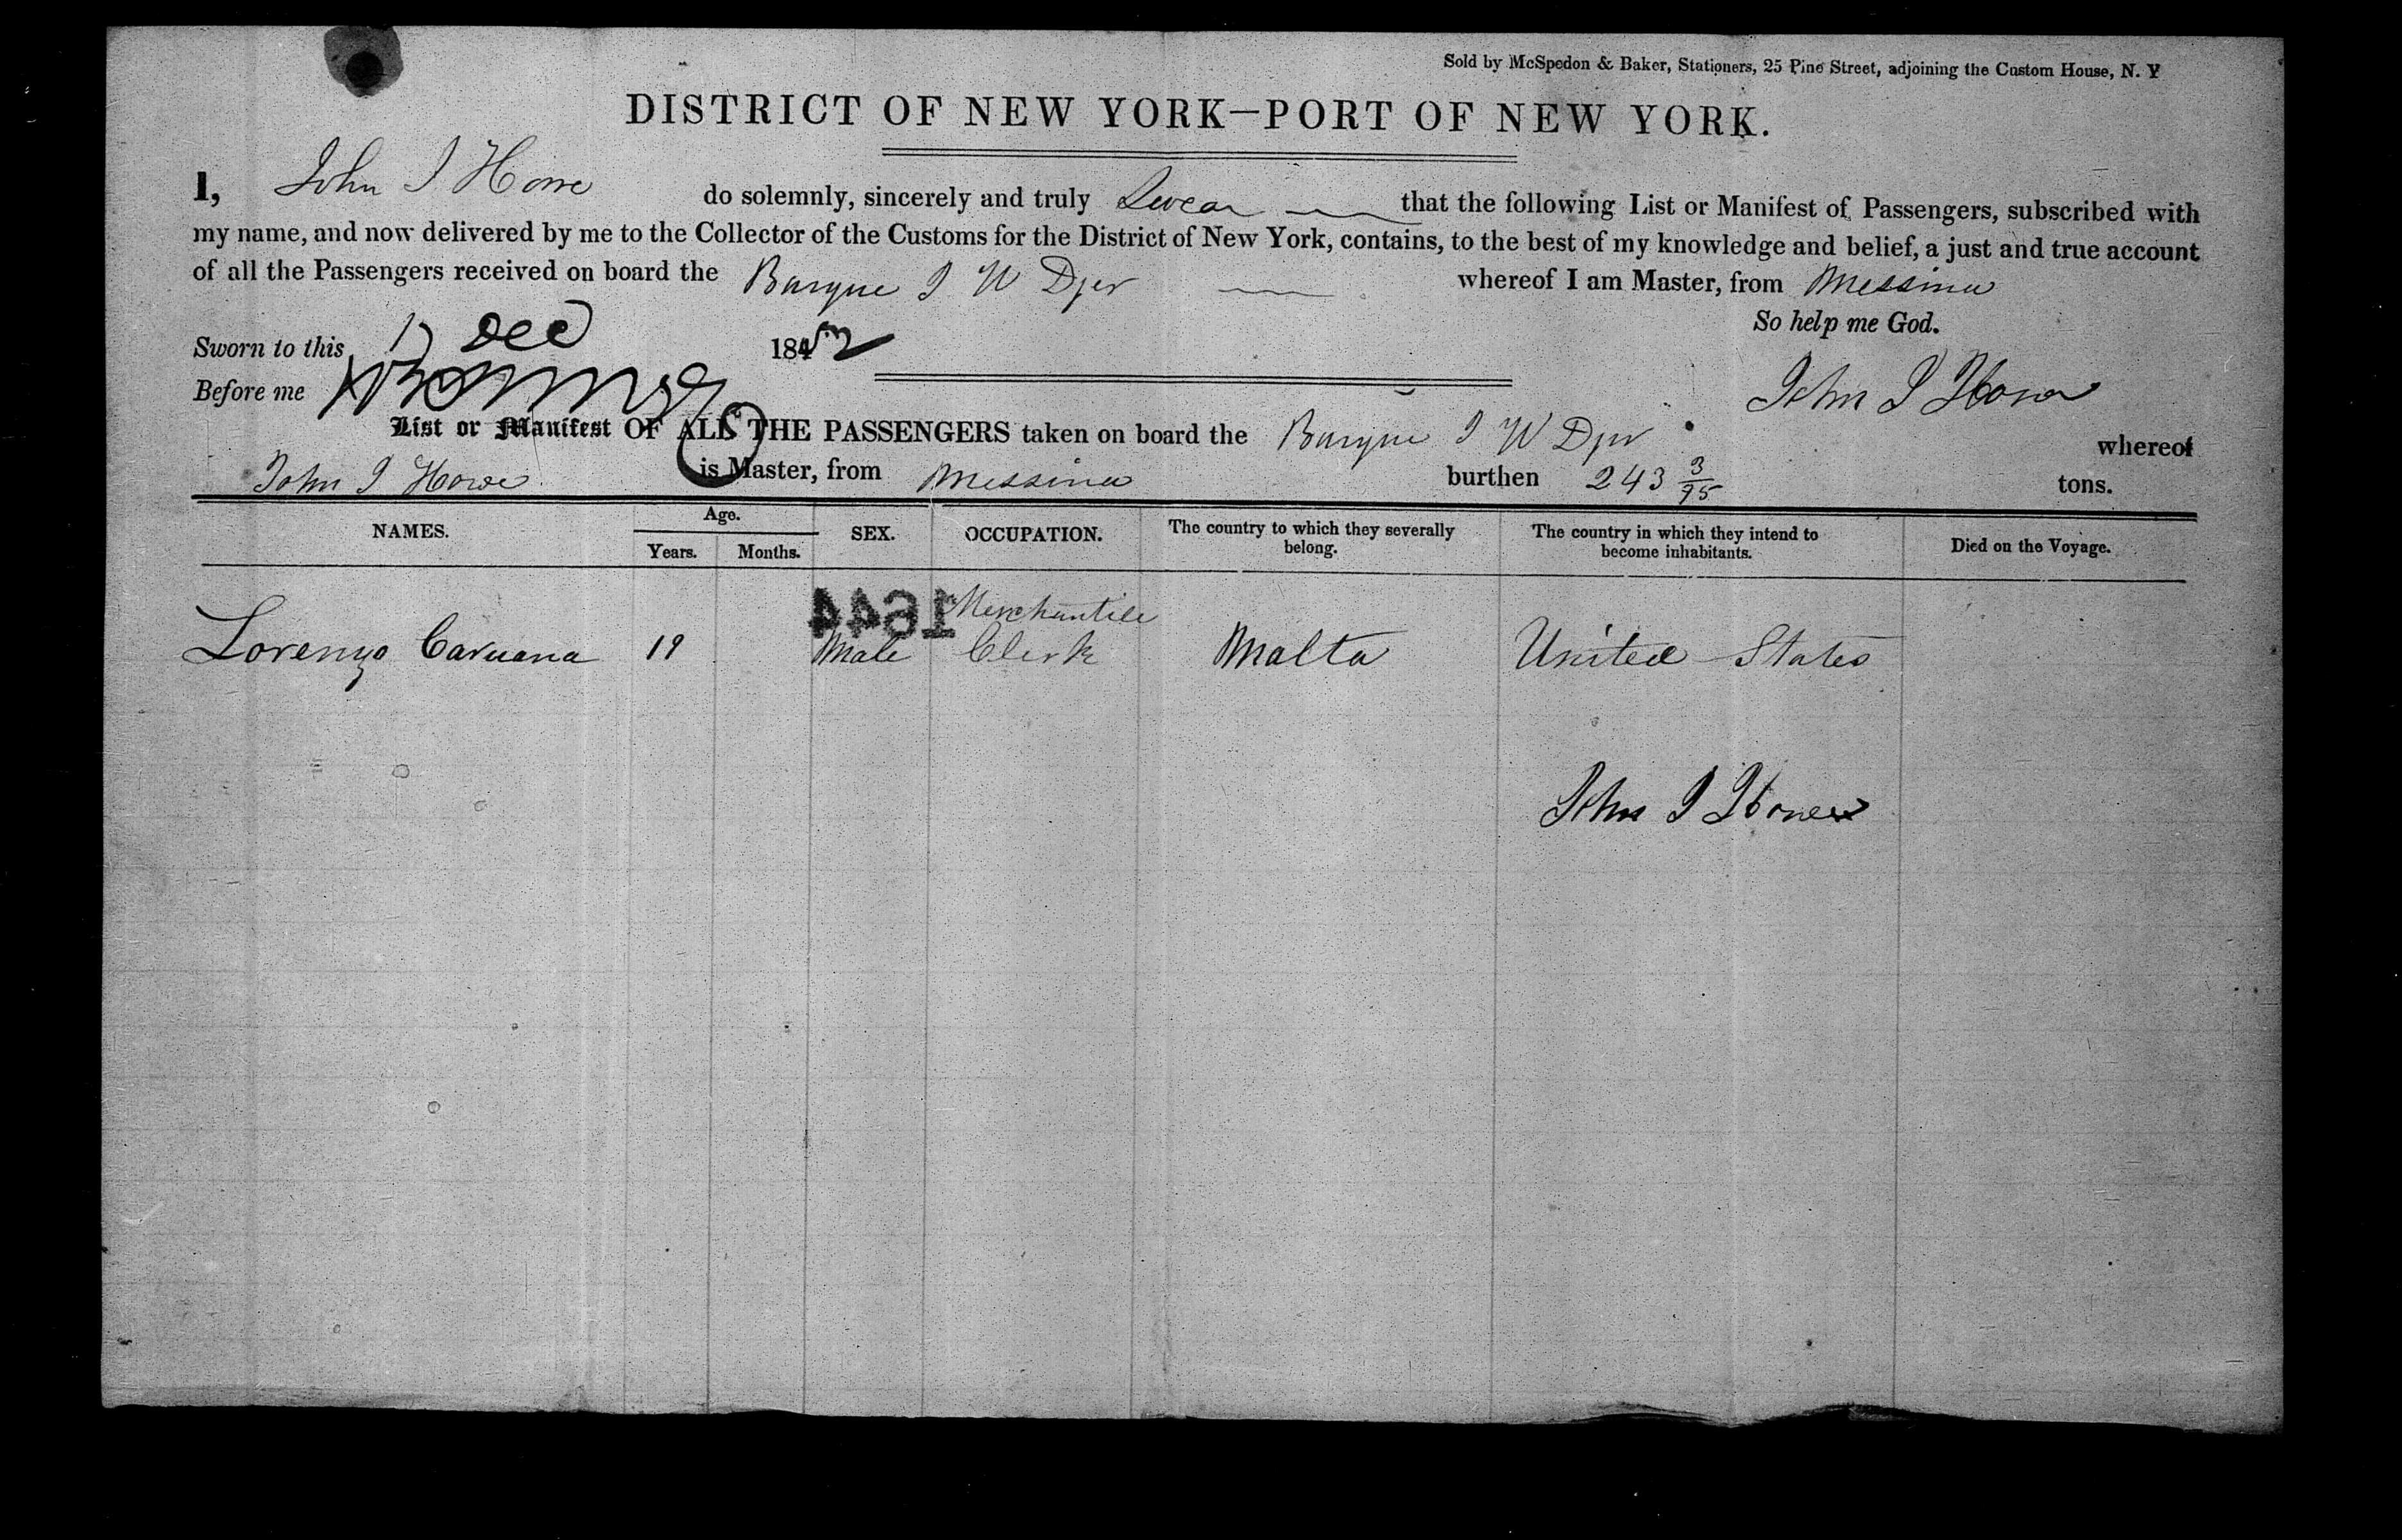 Sold by McSpedon & Baker, Stationers, 25 Pine Street, adjoining the Custom House, N. Y
DISTRICT OF NEW YORK—PORT OF NEW YORK.
I, John I Howe do solemnly, sincerely and truly Swear that the following List or Manifest of Passengers, subscribed with
my name, and now delivered by me to the Collector of the Customs for the District of New York, contains, to the best of my knowledge and belief, a just and true account
of all the Passengers received on board the Barque I W Dyer whereof I am Master, from Messina
So help me God.
Sworn to this 17 Dec 1852
Before me
John I Howe
List or Manifest OF ALL THE PASSENGERS taken on board the Barque I W Dyer whereof
John I Howe is Master, from Messina burthen 243 3/95 tons.
NAMES. Age. Years. Months. SEX. OCCUPATION. The country to which they severally belong. The country in which they intend to become inhabitants. Died on the Voyage.
1644
Lorenzo Caruana 19 Male Merchantile Clerk Malta United States
John I Howe